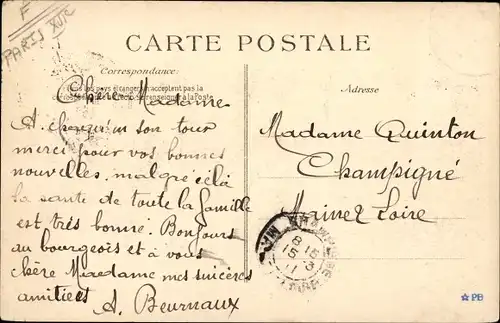 F
PARIS XVIe
CARTE POSTALE
Correspondance
Adresse
Tous les pays étrangers n'acceptent pas la
se renseigner à la Poste
Chère Madame
A chacun son tour
merci pour vos bonnes
nouvelles, malgré cela
la santé de toute la famille
est très bonne. Bonjours
au bourgeois et à vous
chère Madame mes sincères
amitiées
A. Beurnaux
Madame Quinton
Champigné
Maine & Loire
8 15
15 3
11
PB